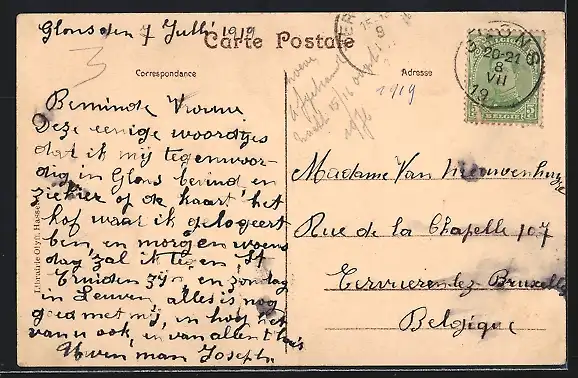 Glons den 7 Julli 1919
Carte Postale
Correspondance
Adresse
Beminde Vrouw
Deze eenige woordtjes
dat ik mij tegenwoor-
dig in Glons bevind en
ziehier op de kaart het
hof waar ik gelogeert
ben, en morgen woens
dag zal ik tegen St
Truiden zijn, en zondag
in Leuven, alles is nog
goed met mij, en hoop het
van u ook, en van allen t'huis
Uwen man Joseph
3
1919
GLONS
20-21
8
VII
19
BELGIE
5
Madame Van Nieuwenhuyze
Rue de la Chapelle 107
Tervueren lez Bruxelles
Belgique
Librairie Olyff, Hasselt